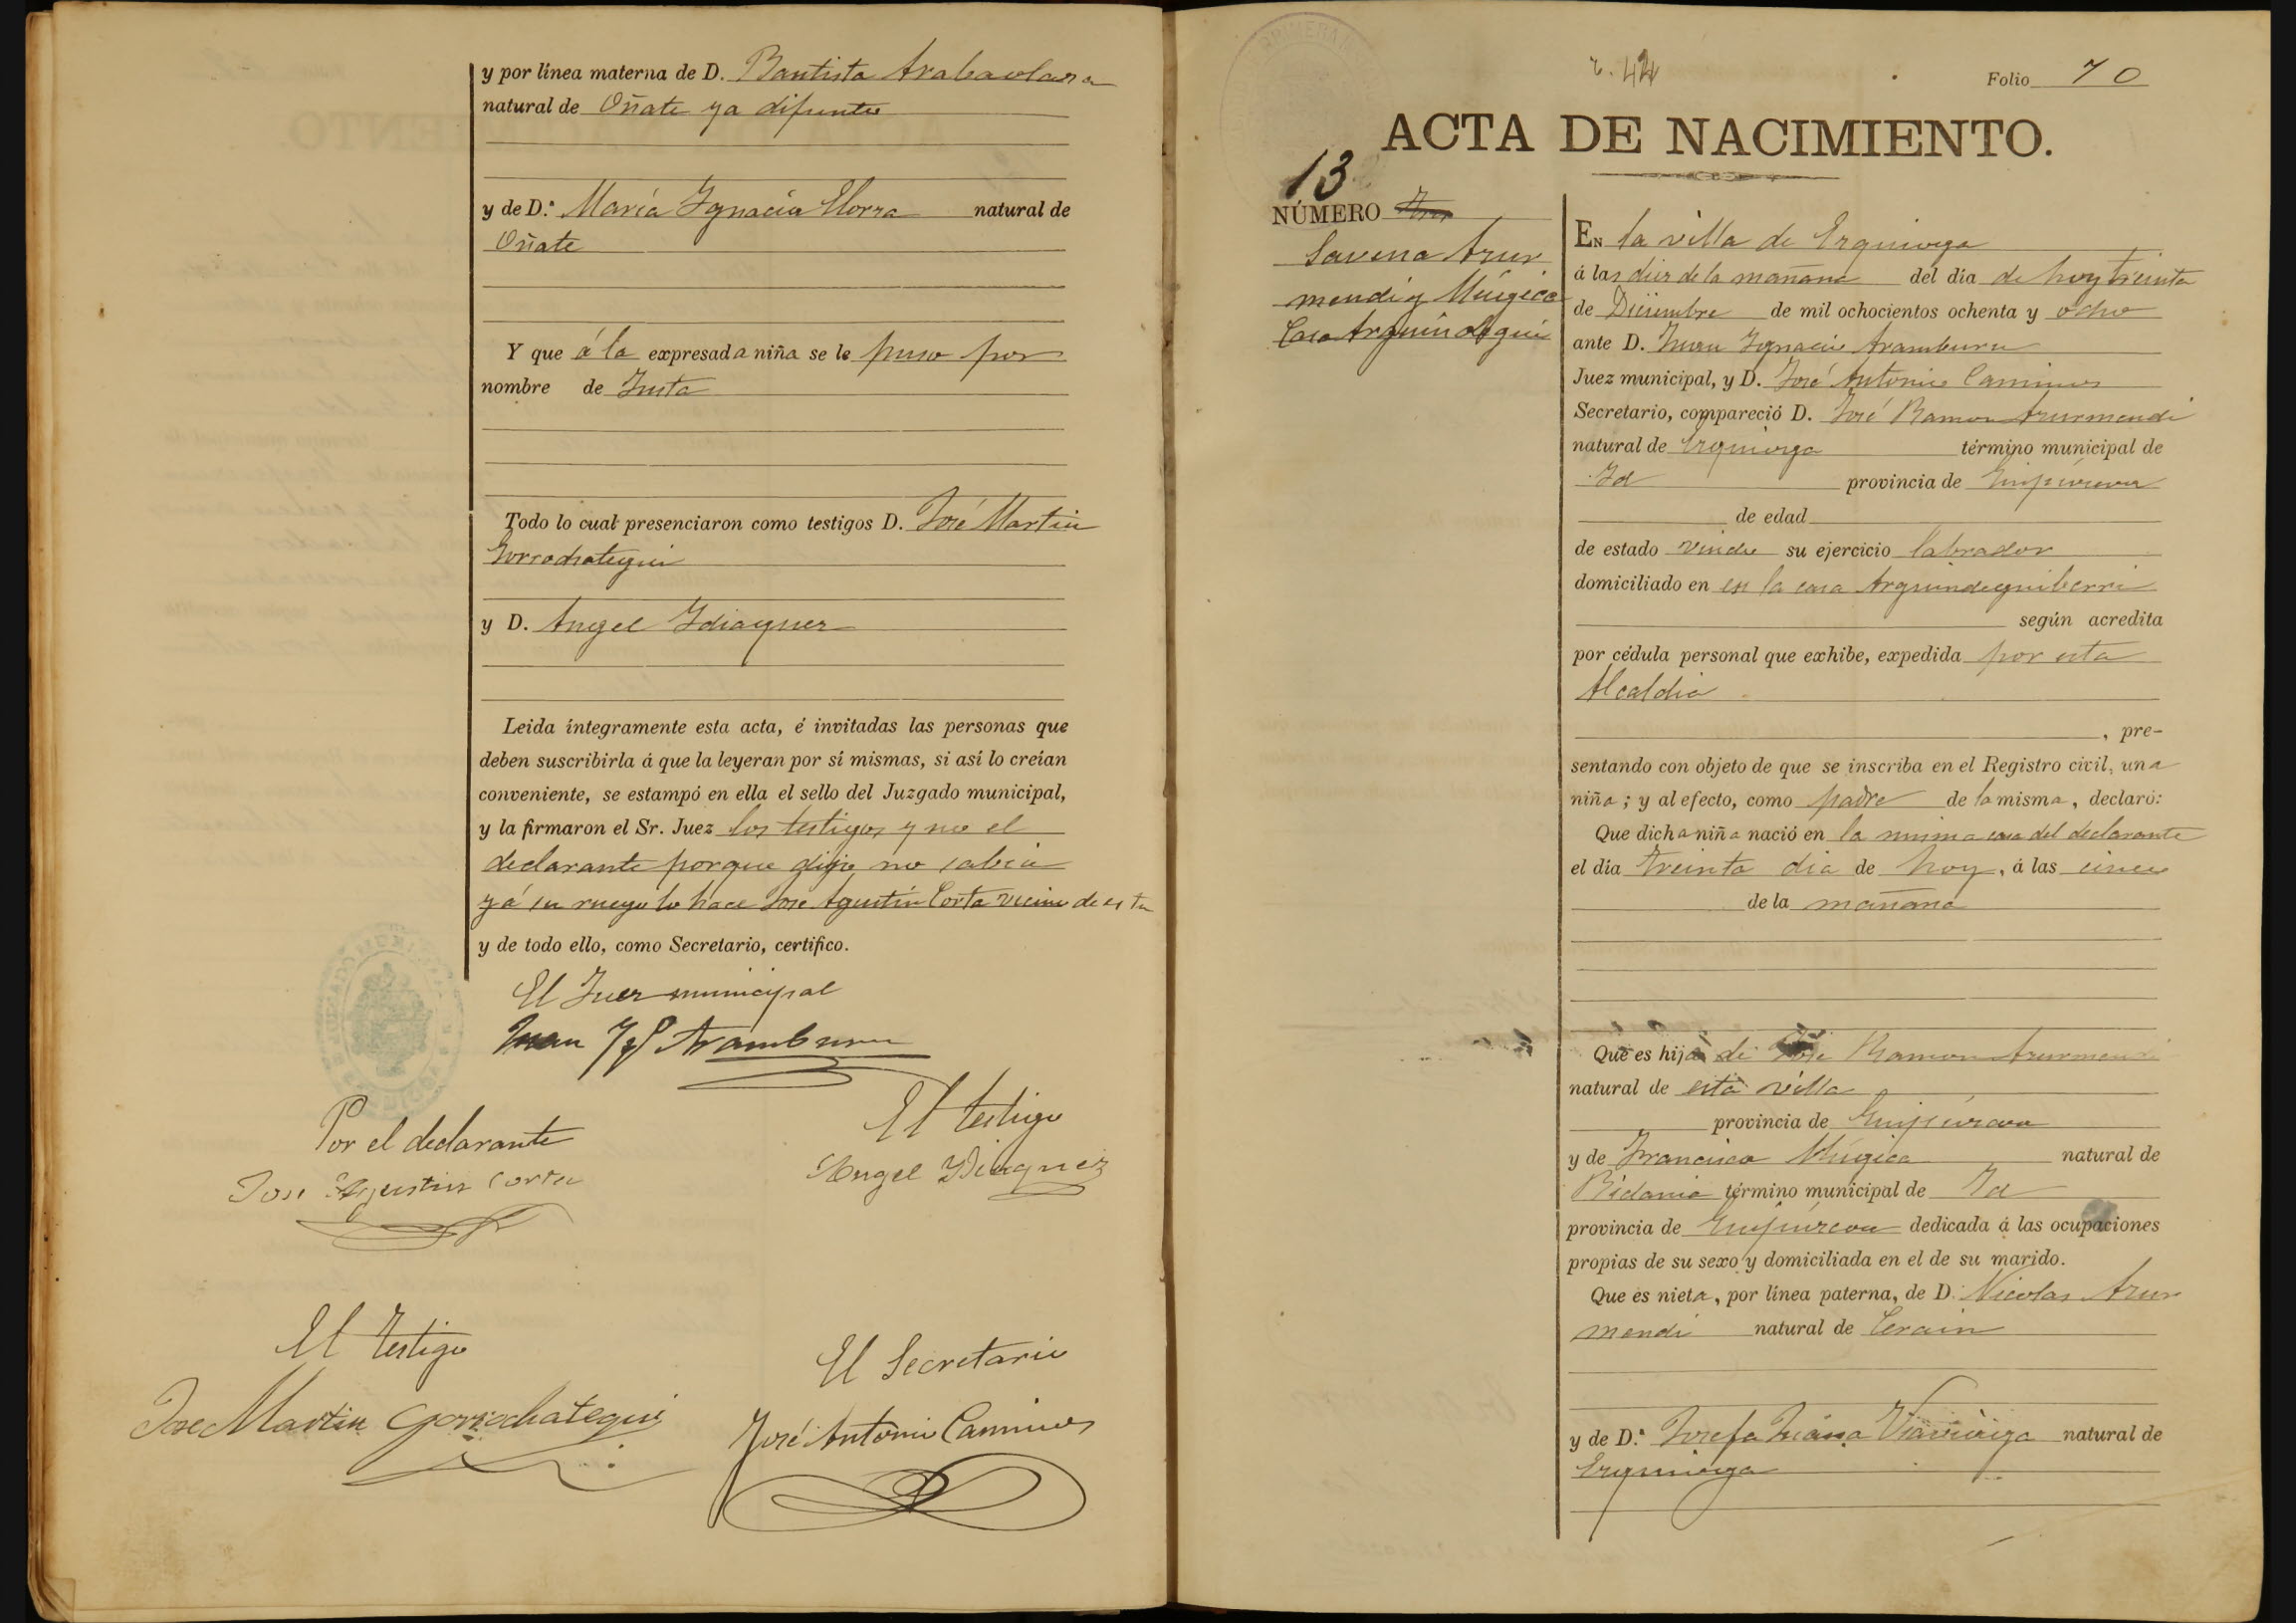 y por línea materna de D. Bautista Arabaolaza
natural de Oñate ya difunto
y de D.ª María Ignacia Elorza natural de
Oñate
Y que á la expresada niña se le puso por
nombre de Justa
Todo lo cual presenciaron como testigos D. José Martin
Gorrochategui
y D. Angel Idiaquez
Leida íntegramente esta acta, é invitadas las personas que
deben suscribirla á que la leyeran por sí mismas, si así lo creían
conveniente, se estampó en ella el sello del Juzgado municipal,
y la firmaron el Sr. Juez los testigos y no el
declarante porque dijo no sabia
y á su ruego lo hace José Agustín Corta vecino de esta
y de todo ello, como Secretario, certifico.
El Juez municipal
Juan Ygº Aramburu
Por el declarante
José Agustin Corta
El testigo
Angel Idiaquez
El testigo
Jose Martin Gorrochategui
El Secretario
José Antonio Caminos
42
Folio 70
ACTA DE NACIMIENTO.
13
NÚMERO
Savina Azur
mendi y Múgica
Casa
EN la villa de Ezquioga
á las diez de la mañana del día de hoy treinta
de Diciembre de mil ochocientos ochenta y ocho
ante D. Juan Ignacio Aramburu
Juez municipal, y D. José Antonio Caminos
Secretario, compareció D. José Ramon Azurmendi
natural de Ezquioga término municipal de
Id provincia de Guipúzcoa
de edad
de estado viudo su ejercicio labrador
domiciliado en en la casa Arguindeguiberri
según acredita
por cédula personal que exhibe, expedida por esta
Alcaldia
, pre-
sentando con objeto de que se inscriba en el Registro civil, una
niña; y al efecto, como padre de la misma, declaró:
Que dicha niña nació en la misma casa del declarante
el día treinta dia de hoy, á las cinco
de la mañana
Que es hija de José Ramon Azurmendi
natural de esta villa
provincia de Guipúzcoa
y de Francisca Múgica natural de
Bidania término municipal de Id
provincia de Guipúzcoa dedicada á las ocupaciones
propias de su sexo y domiciliada en el de su marido.
Que es nieta, por línea paterna, de D. Nicolas Azur
mendi natural de Cerain
y de D.ª Josefa natural de
Ezquioga